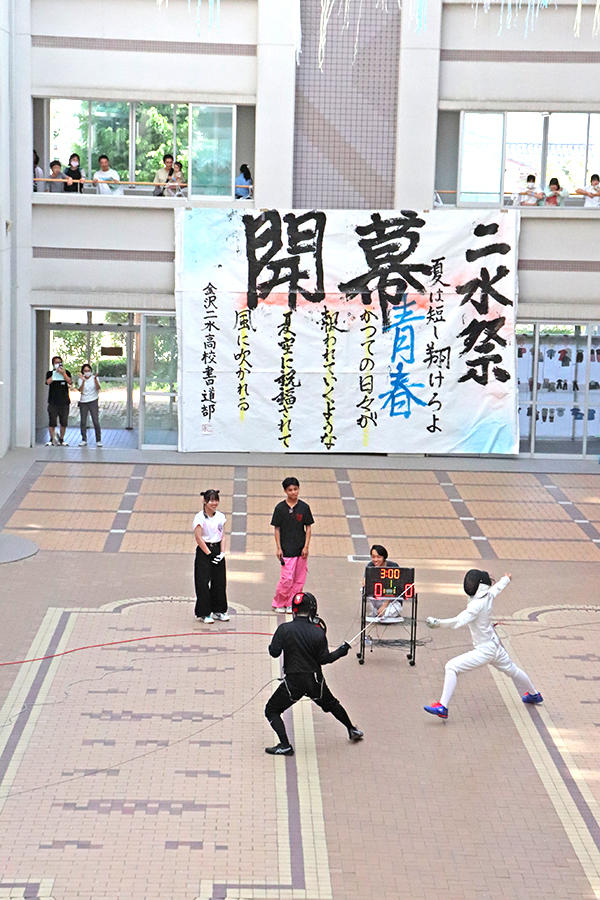 二水祭
開幕
夏は短し翔けろよ
青春
かつての日々が
報われていくような
夏空に祝福されて
風に吹かれる
金沢二水高校書道部
3:00
0 0